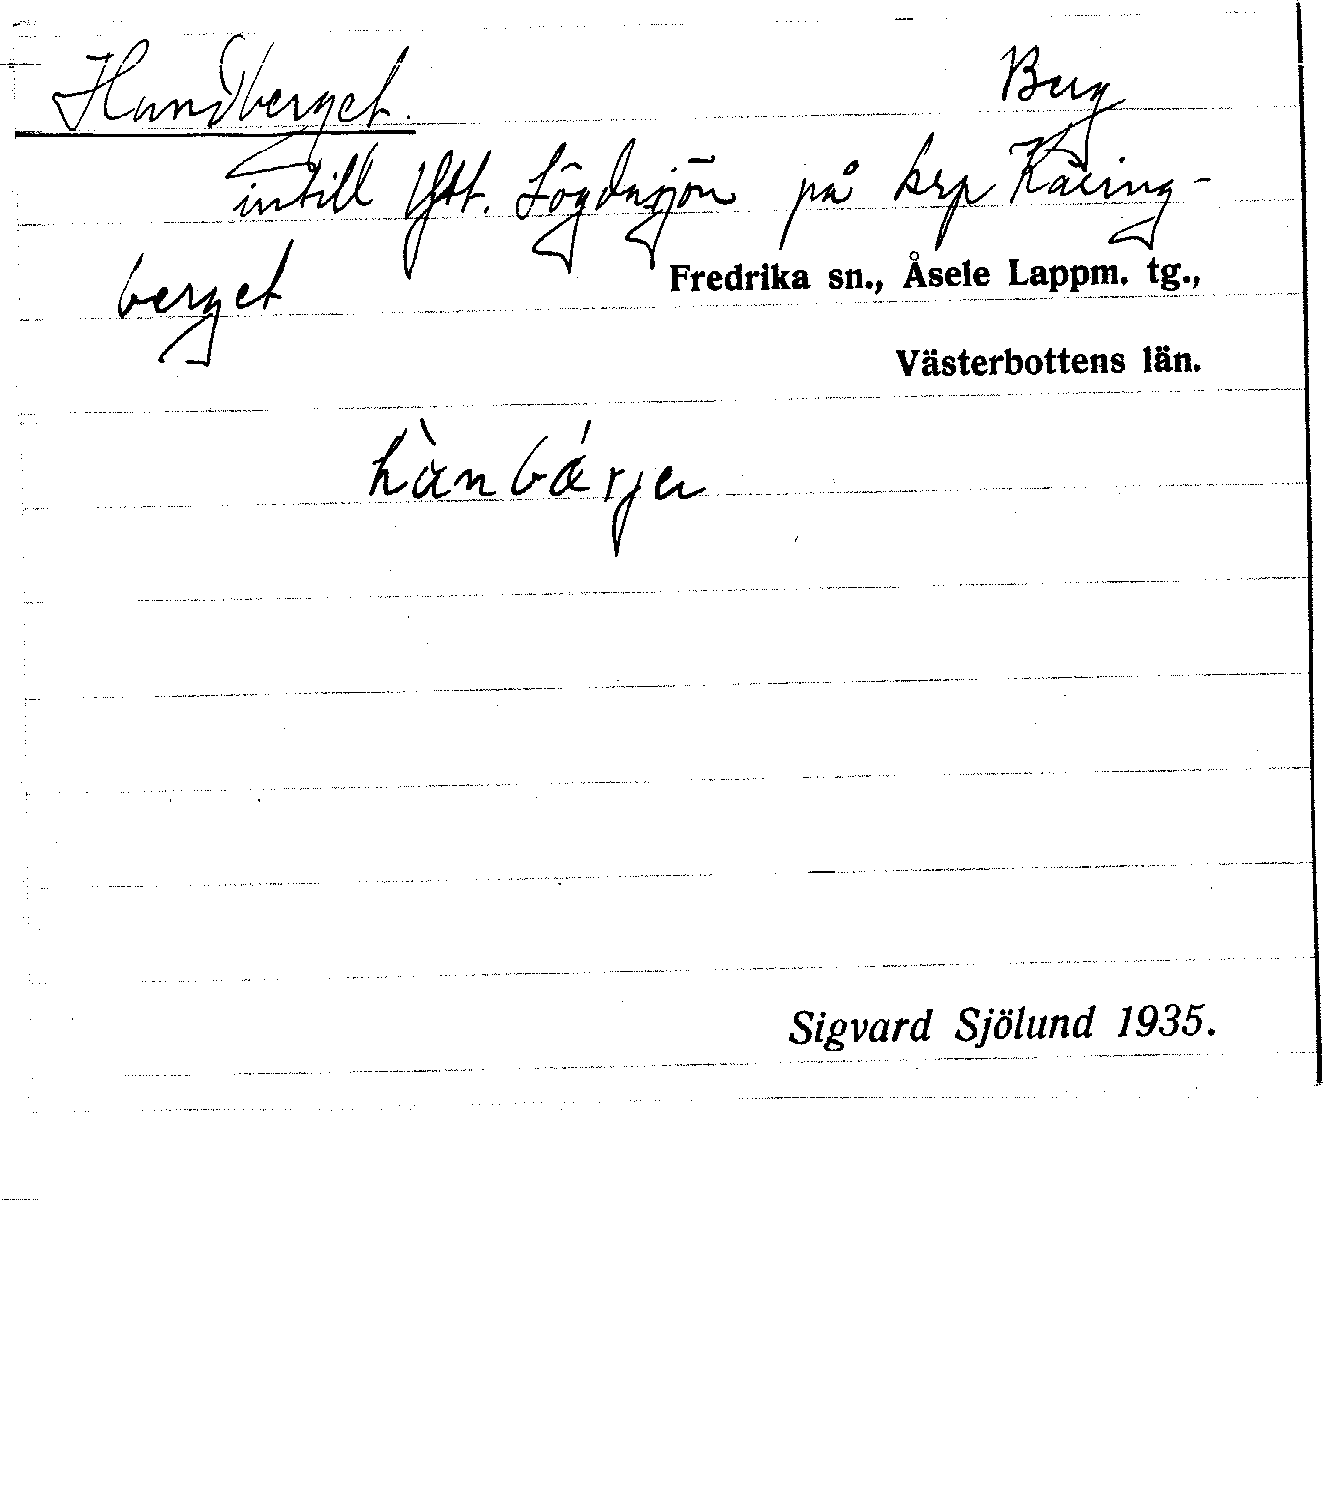 Handberget. Berg
intill Ytt. Lögdasjön på krp Käring-
berget
Fredrika sn., Åsele Lappm. tg.,
Västerbottens län.
hànbárjeɹ
Sigvard Sjölund 1935.